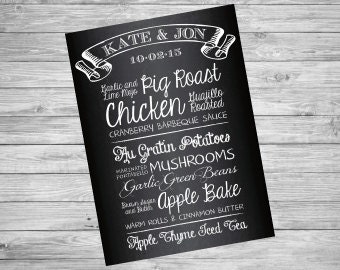 KATE & JON
10-02-15
Garlic and Lime Mojo Pig Roast
Chicken Guajillo Roasted
CRANBERRY BARBEQUE SAUCE
Au Gratin Potatoes
MARINATED PORTABELLO MUSHROOMS
Garlic Green Beans
Brown Sugar and Butter Apple Bake
WARM ROLLS & CINNAMON BUTTER
Apple Thyme Iced Tea